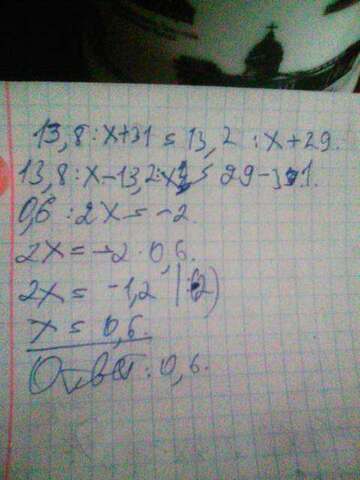 13,8:x+31=13,2:x+29.
13,8:x-13,2:x = 29-31.
0,6:2x=-2.
2x=-2·0,6.
2x= -1,2 |:(2)
x= 0,6.
Ответ: 0,6.